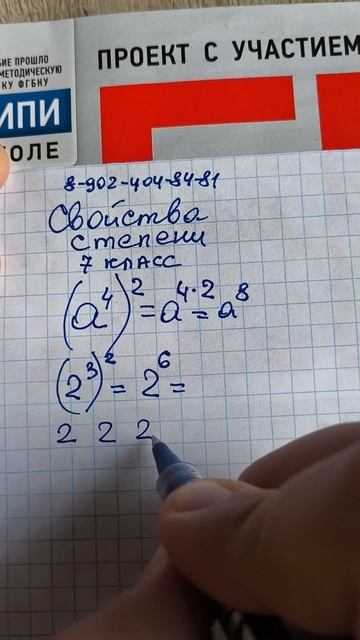 ПРОШЛО
МЕТОДИЧЕСКУЮ
КУ ФГБНУ
ИПИ
ОЛЕ
ПРОЕКТ С УЧАСТИЕМ
8-902-404-84-81
Свойства
степени
7 класс
(a⁴)² = a⁴·² = a⁸
(2³)² = 2⁶ =
2 2 2